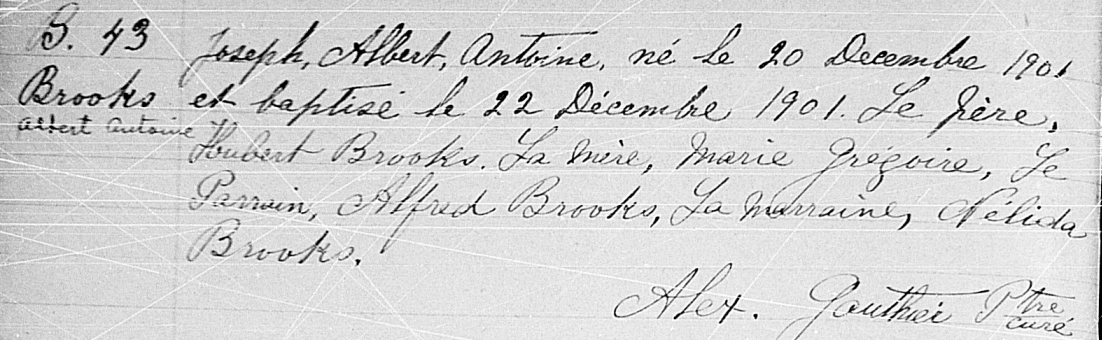 B. 43
Brooks
Albert Antoine
Joseph, Albert, Antoine, né le 20 Decembre 1901
et baptisé le 22 Décembre 1901. Le père,
Hubert Brooks. La mère, Marie Grégoire, Le
Parrain, Alfred Brooks, La Marraine, Nélida
Brooks.
Alex. Gauthier Ptre
curé